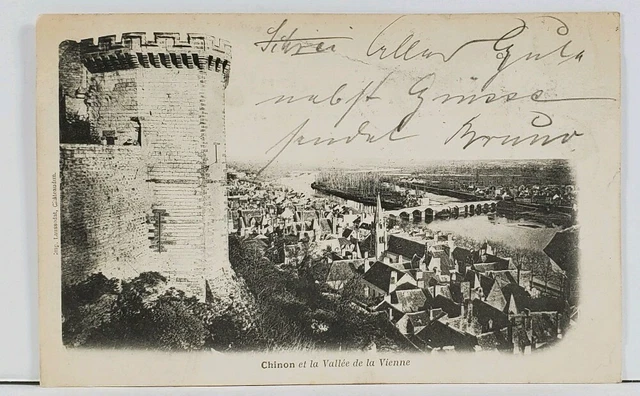 Alles Gute
nebst Grüsse
sendet Bruno
Chinon et la Vallée de la Vienne